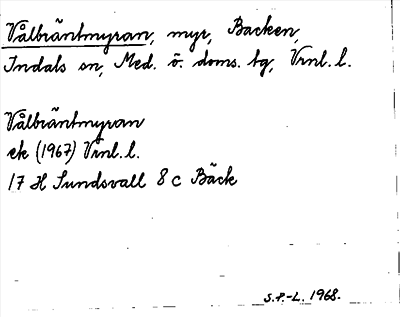 Vålbräntmyran, myr, Backen,
Indals sn, Med. ö. doms. tg, Vrnl. l.
Vålbräntmyran
ek (1967) Vrnl. l.
17 H Sundsvall 8 c Bäck
S.P.-L. 1968.